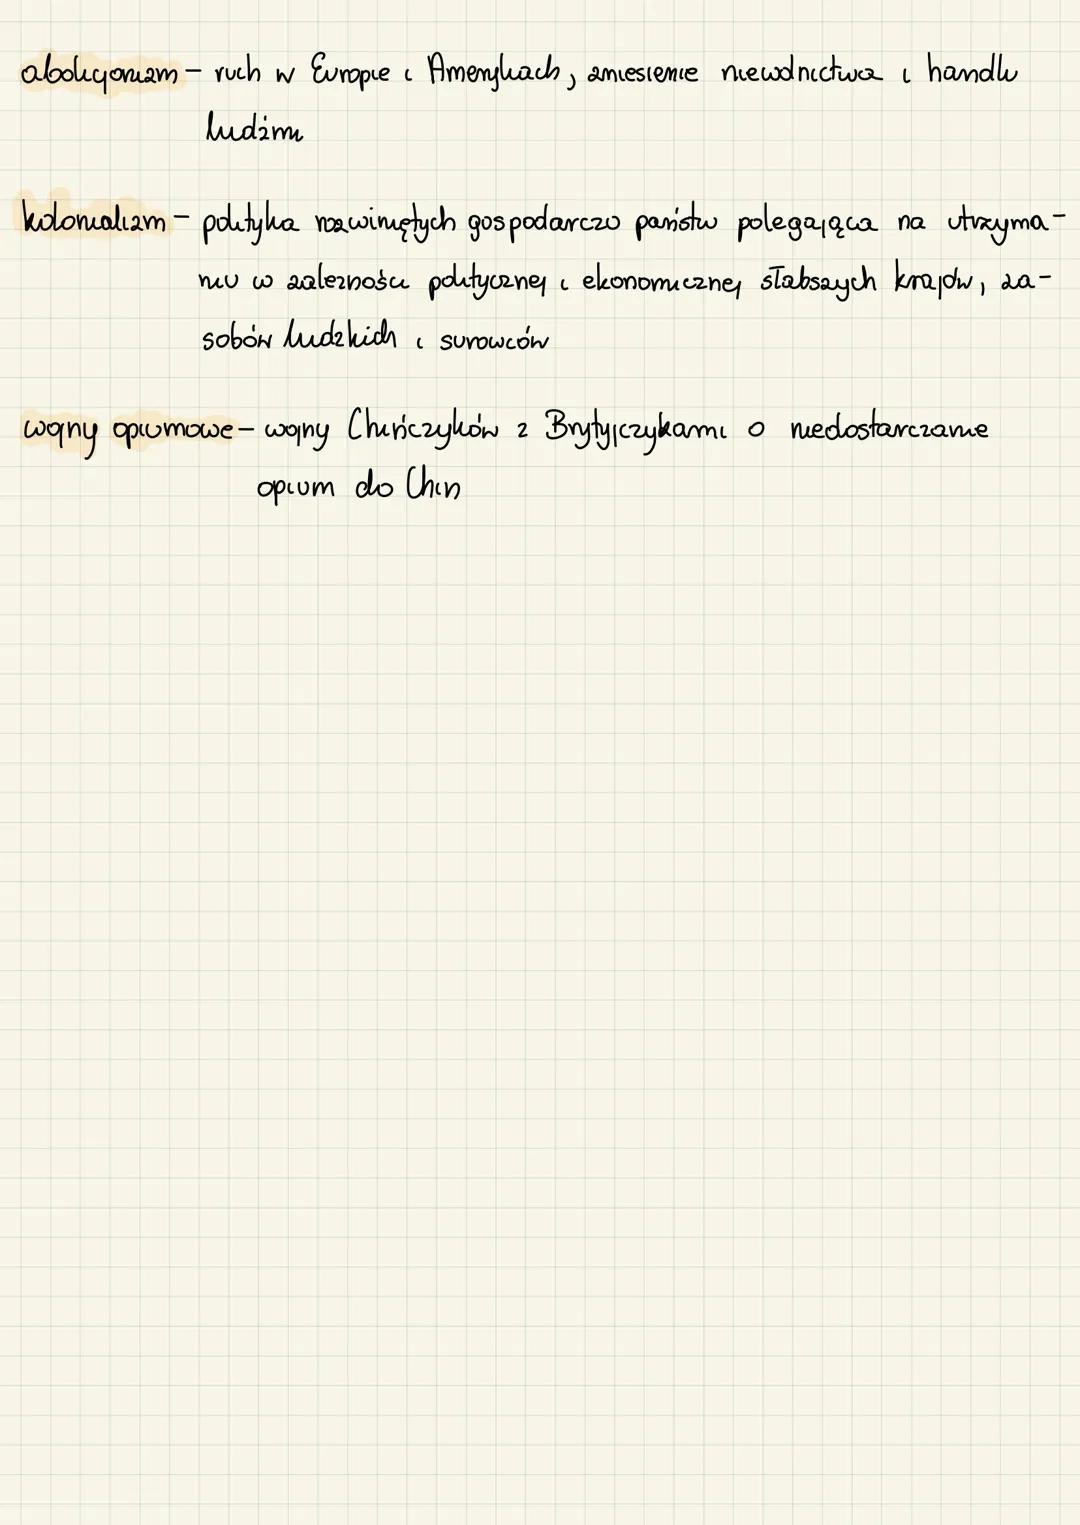 abolicjonizm – ruch w Europie i Amerykach, zniesienie niewolnictwa i handlu
ludźmi
kolonializm – polityka rozwiniętych gospodarczo państw polegająca na utrzyma-
niu w zależności politycznej i ekonomicznej słabszych krajów, za-
sobów ludzkich i surowców
wojny opiumowe – wojny Chińczyków z Brytyjczykami o niedostarczanie
opium do Chin